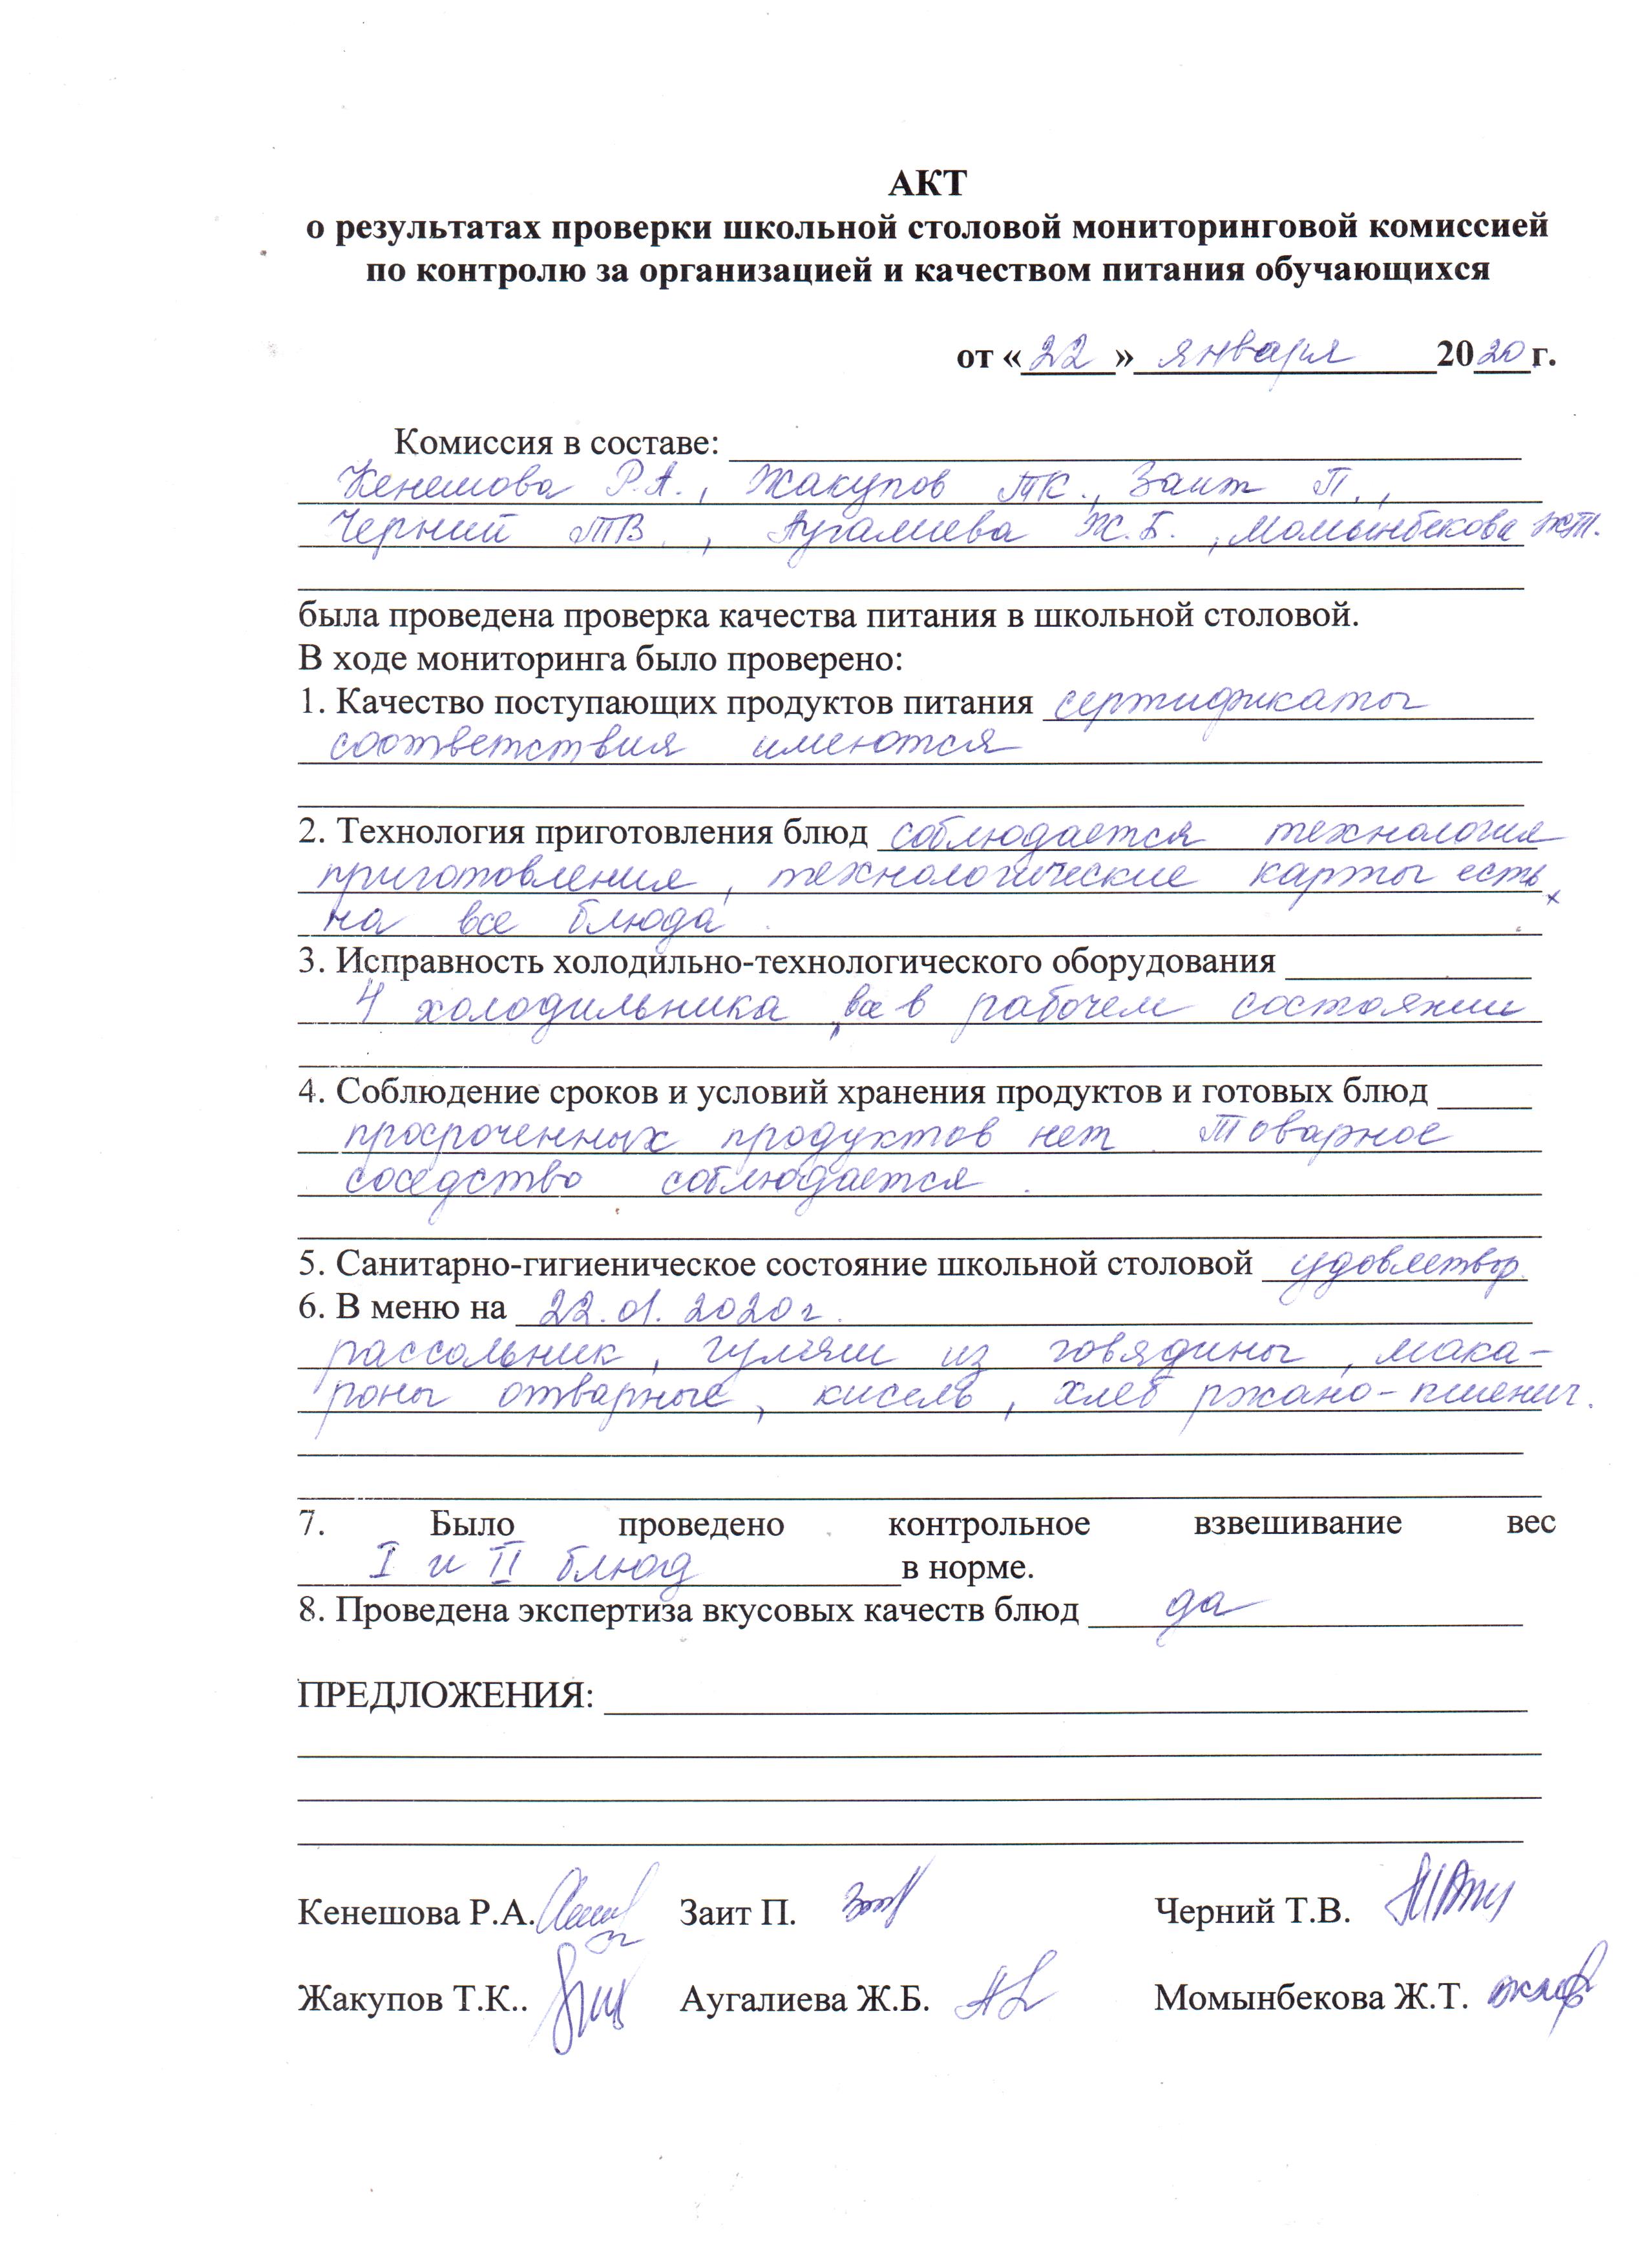 АКТ
о результатах проверки школьной столовой мониторинговой комиссией
по контролю за организацией и качеством питания обучающихся
от «22» января 2020 г.
Комиссия в составе:
Кенешова Р.А., Жакупов ТК., Заит П.,
Черний ТВ., Аугалиева Ж.Б., Момынбекова ЖТ.
была проведена проверка качества питания в школьной столовой.
В ходе мониторинга было проверено:
1. Качество поступающих продуктов питания сертификаты
соответствия имеются
2. Технология приготовления блюд соблюдается технология
приготовления, технологические карты есть
на все блюда.
3. Исправность холодильно-технологического оборудования
4 холодильника, все в рабочем состоянии
4. Соблюдение сроков и условий хранения продуктов и готовых блюд
просроченных продуктов нет. Товарное
соседство соблюдается.
5. Санитарно-гигиеническое состояние школьной столовой удовлетвор.
6. В меню на 22.01.2020г.
рассольник, гуляш из говядины, мака-
роны отварные, кисель, хлеб ржано-пшенич.
7. Было проведено контрольное взвешивание вес
I и II блюд в норме.
8. Проведена экспертиза вкусовых качеств блюд да
ПРЕДЛОЖЕНИЯ:
Кенешова Р.А. Заит П. Черний Т.В.
Жакупов Т.К.. Аугалиева Ж.Б. Момынбекова Ж.Т.